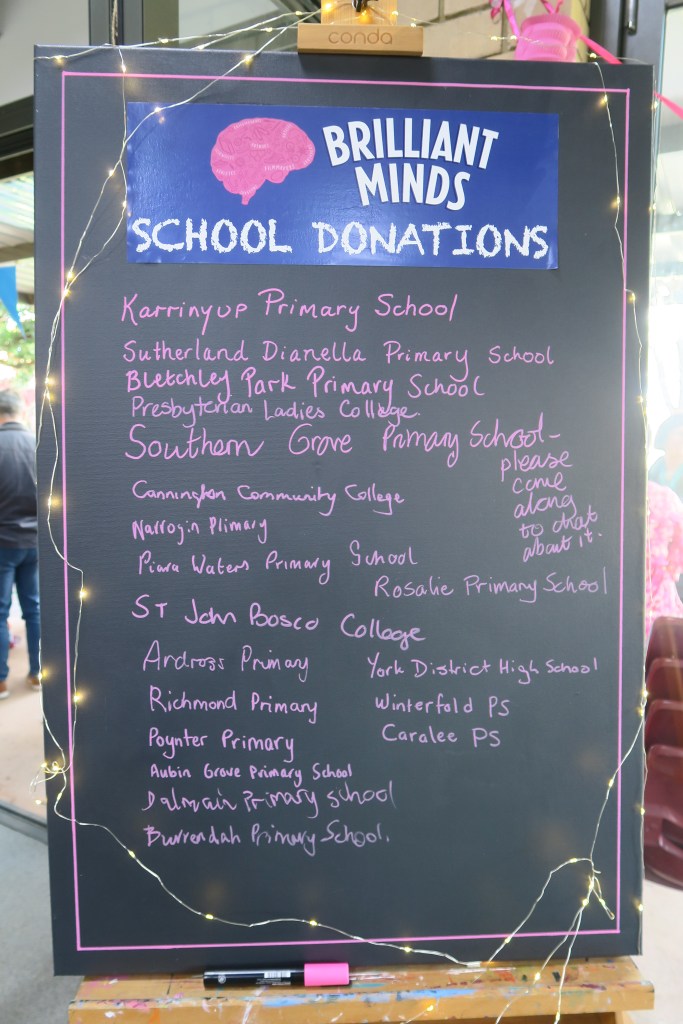 conda
BRILLIANT
MINDS
SCHOOL DONATIONS
Karrinyup Primary School
Sutherland Dianella Primary School
Bletchley Park Primary School
Presbyterian Ladies College.
Southern Grove Primary School-
please
come
along
to chat
about it.
Cannington Community College
Narrogin Primary
Piara Waters Primary School
Rosalie Primary School
ST John Bosco College
Ardross Primary
York District High School
Richmond Primary
Winterfold PS
Poynter Primary
Caralee PS
Aubin Grove Primary School
Dalmain Primary School
Burrendah Primary School.